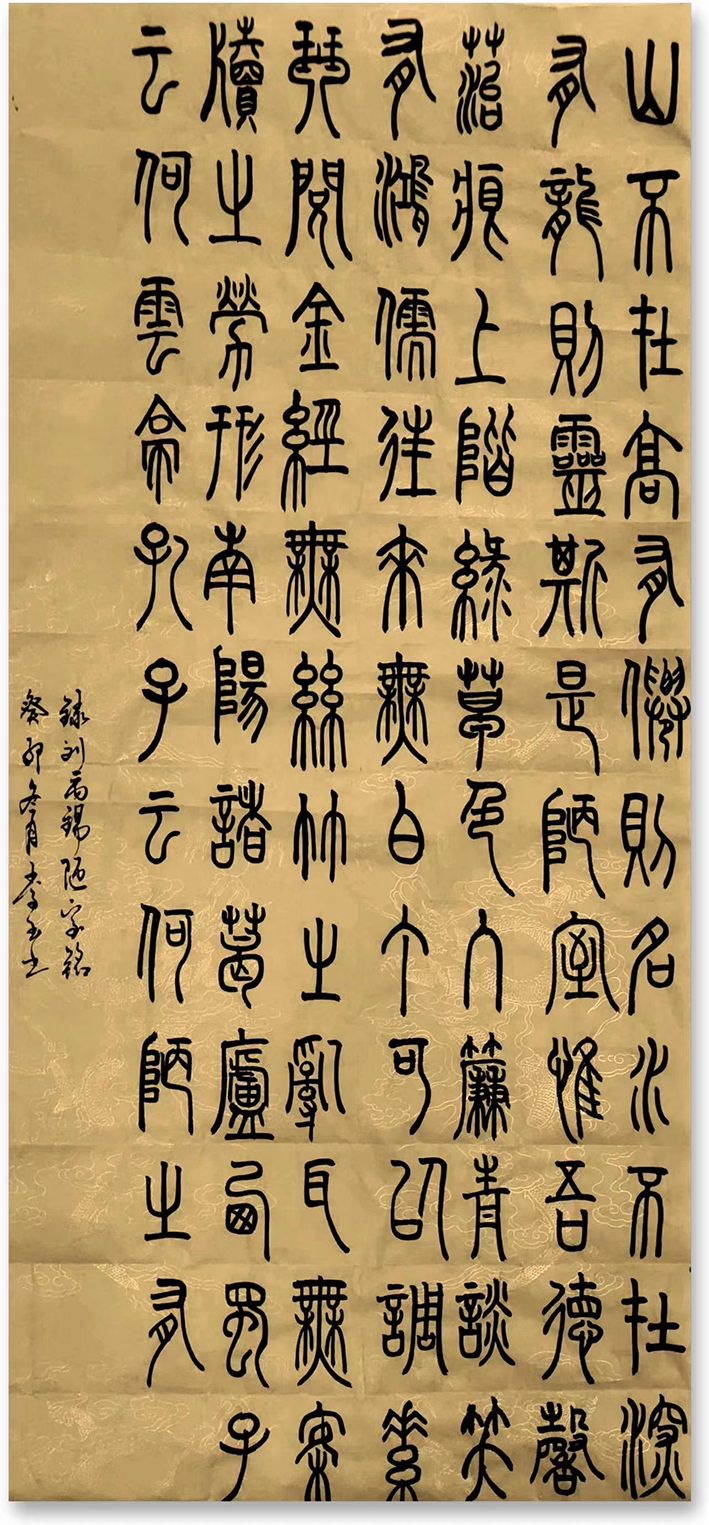 山不在高有僊則名水不在深
有龍則靈斯是陋室惟吾德馨
菭痕上階綠草色入簾青談笑
有鴻儒往來無白丁可以調素
琴閱金經無絲竹之亂耳無案
牘之勞形南陽諸葛廬西蜀子
云何雲亭孔子云何陋之有
録刘禹锡陋室铭
癸卯冬月李